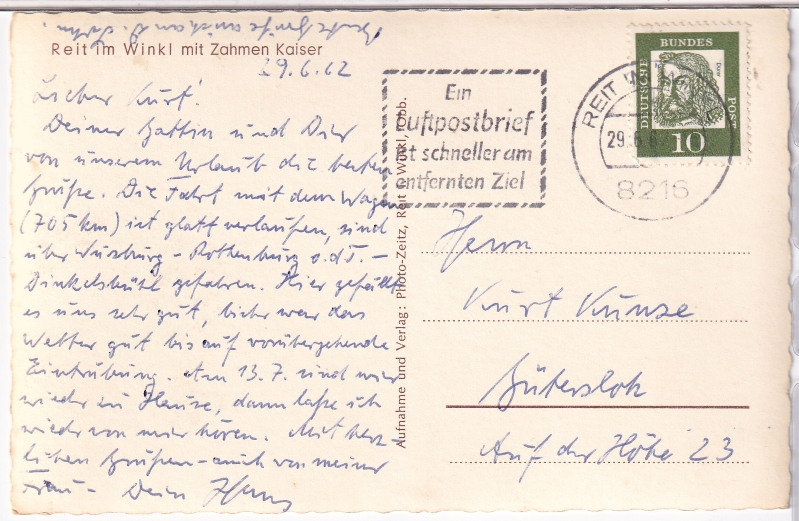 Beste Grüße auch an
Reit im Winkl mit Zahmen Kaiser
29.6.62
Lieber Kurt!
Deiner Gattin und Dir
von unserem Urlaub die besten
Grüße. Die Fahrt mit dem Wagen
(705 km) ist glatt verlaufen, sind
über Würzburg - Rothenburg o.d.T. -
Dinkelsbühl gefahren. Hier gefällt
es uns sehr gut, bisher war das
Wetter gut bis auf vorübergehende
Eintrübung. Am 13.7. sind wir
wieder zu Hause, dann laße ich
wieder von mir hören. Mit herz-
lichen Grüßen - auch von meiner
Frau - Dein Hans
Aufnahme und Verlag: Photo-Zeitz, Reit i. Winkl, Obb.
Ein
Luftpostbrief
ist schneller am
entfernten Ziel
REIT
29.6.62
8216
DEUTSCHE BUNDES POST
Dürer
10
Herrn
Kurt Kunze
Gütersloh
Auf der Höhe 23